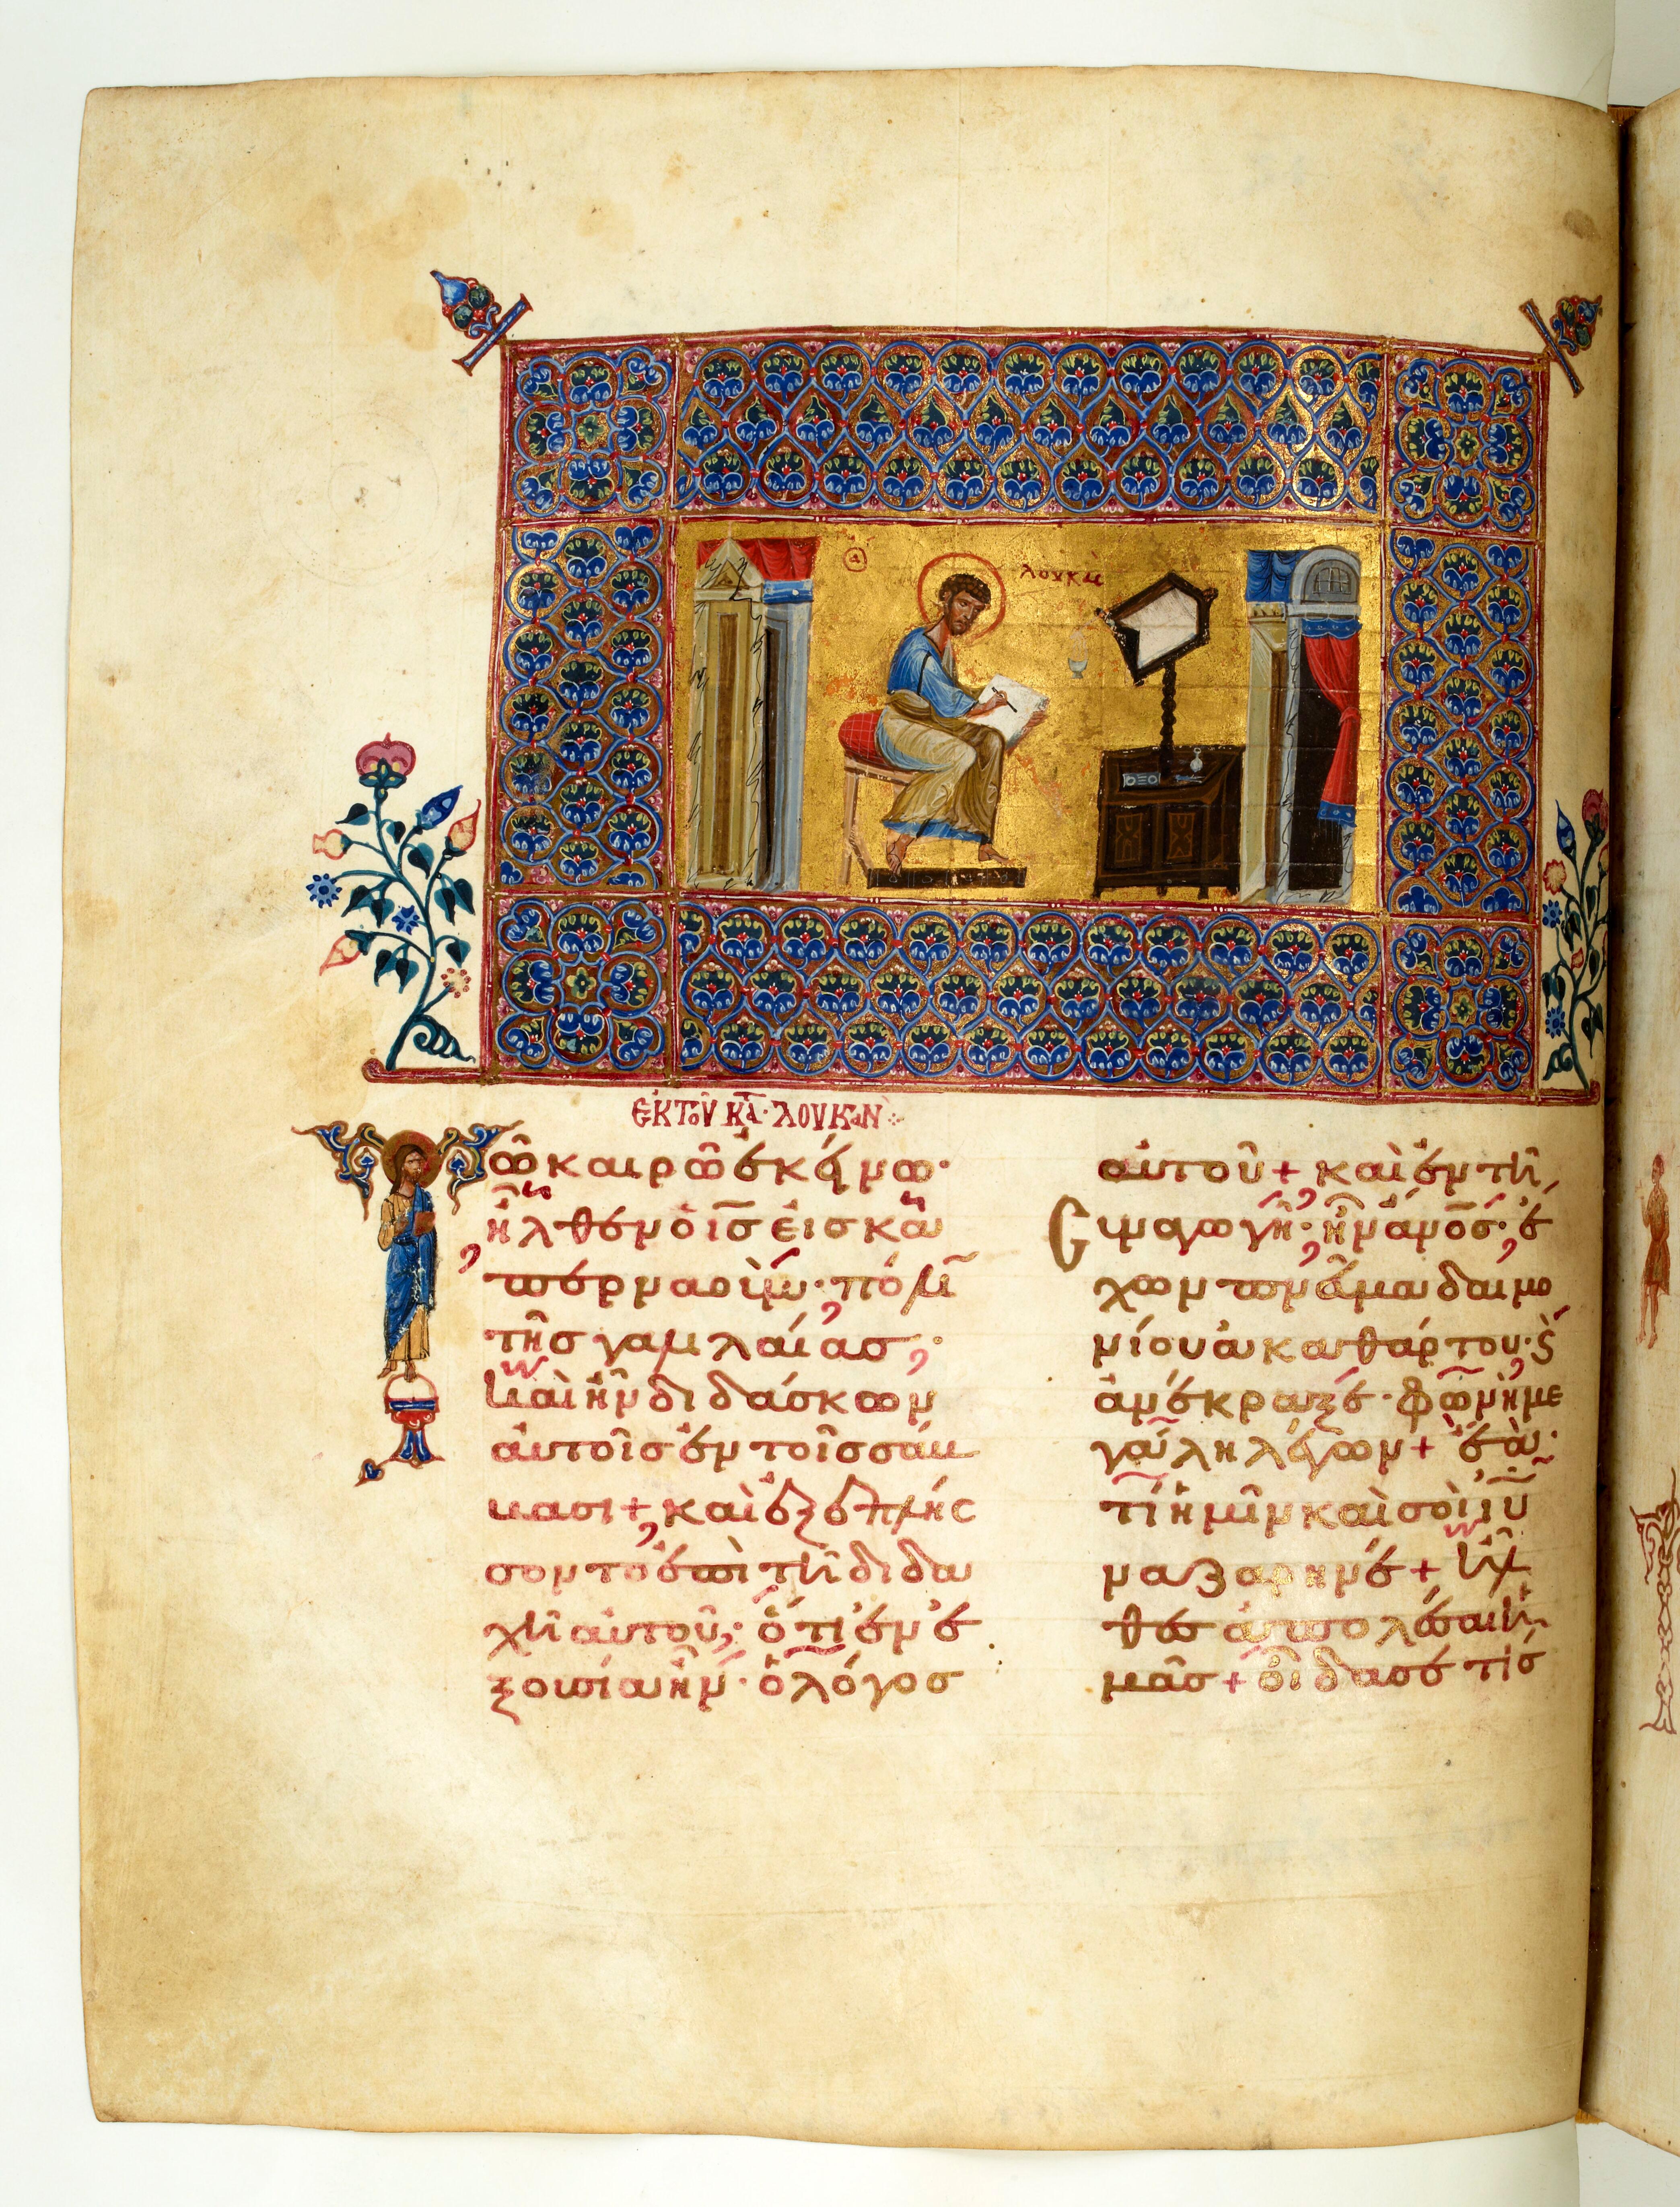 ⓐ
λουκᾶ
ἐκ τοῦ κα̅τ̅· λουκᾶν
Τῶ καιρῶ ἐκείνω·
ἦλθεν ὁ ι̅ς̅ εἰς κα
περναούμ· πόλιν
τῆς γαλιλαίας·
καὶ ἦν διδάσκων
αὐτοῖς ἐν τοῖς σάβ
βασι+ καὶ ἐξεπλήσ
σοντο ἐπὶ τῆ διδα
χῆ αὐτοῦ· ὅτι ἐν ἐ
ξουσία ἦν· ὁ λόγος
αὐτοῦ+ καὶ ἐν τῆ
συναγωγῆ· ἦν ἄνος· ἔ
χων πνεῦμα δαιμο
νίου ἀκαθάρτου· κ
ἀνέκραξε· φωνῆ με
γάλη λέγων+ ἔα·
τί ἡμῖν καὶ σοὶ ι̅υ̅
ναζαρηνέ+ ἦλ
θες ἀπολέσαι ἡ
μᾶς+ οἶδά σε τίς